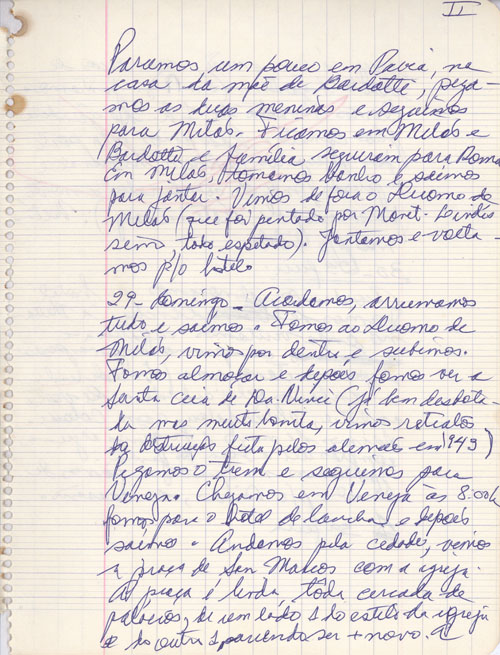 II
Paramos um pouco em Pavia, na
casa da mãe de Bardotti, pega-
mos as duas meninas e seguimos
para Milão. Ficamos em Milão e
Bardotti e família seguiram para Roma
Em Milão, tomamos banho e saimos
para jantar. Vimos de fora o Duomo de
Milão (que foi pintado por Monet. Lindís
simo, todo espetado). Jantamos e volta-
mos p/o hotel.
29 - domingo - Acordamos, arrumamos
tudo e saimos. Fomos ao Duomo de
Milão, vimos por dentro e subimos.
Fomos almoçar e depois fomos ver a
Santa ceia de Da Vinci (já bem desbota-
da mas muito bonita, vimos retratos
da destruição feita pelos alemães em 1943)
Pegamos o trem e seguimos para
Veneza. Chegamos em Veneza às 8:00h
fomos para o Hotel de lancha e depois
saimos. Andamos pela cidade, vimos
a praça de San Marcos com a igreja.
A praça é linda, toda cercada de
palácios, de um lado 1 do estilo da igreja
e do outro 1 parecendo ser + novo. A